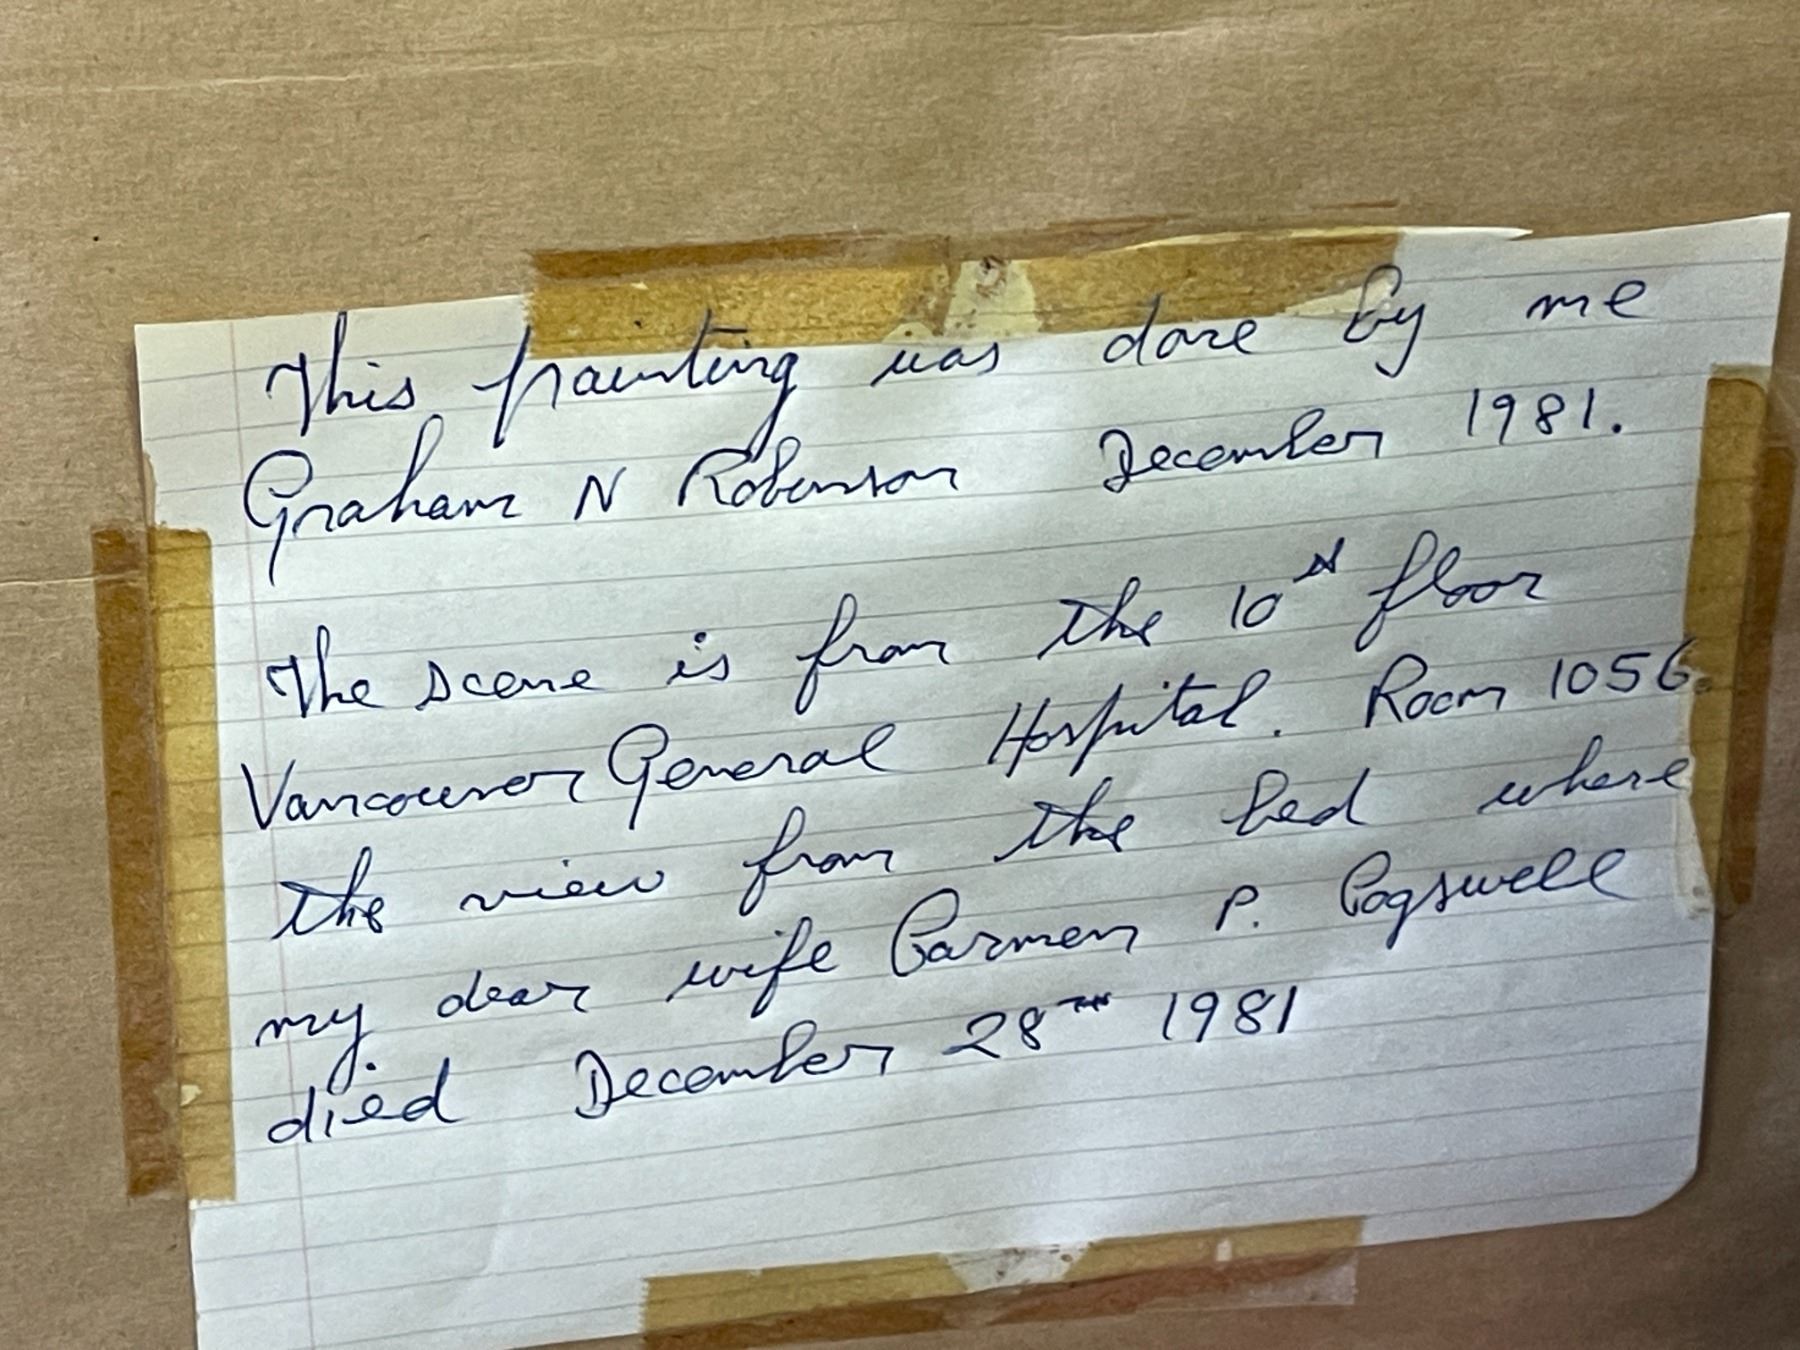 This painting was done by me
Graham N Robinson December 1981.
The scene is from the 10th floor
Vancouver General Hospital. Room 1056.
the view from the bed where
my dear wife Carmen P. Cogswell
died December 28TH 1981